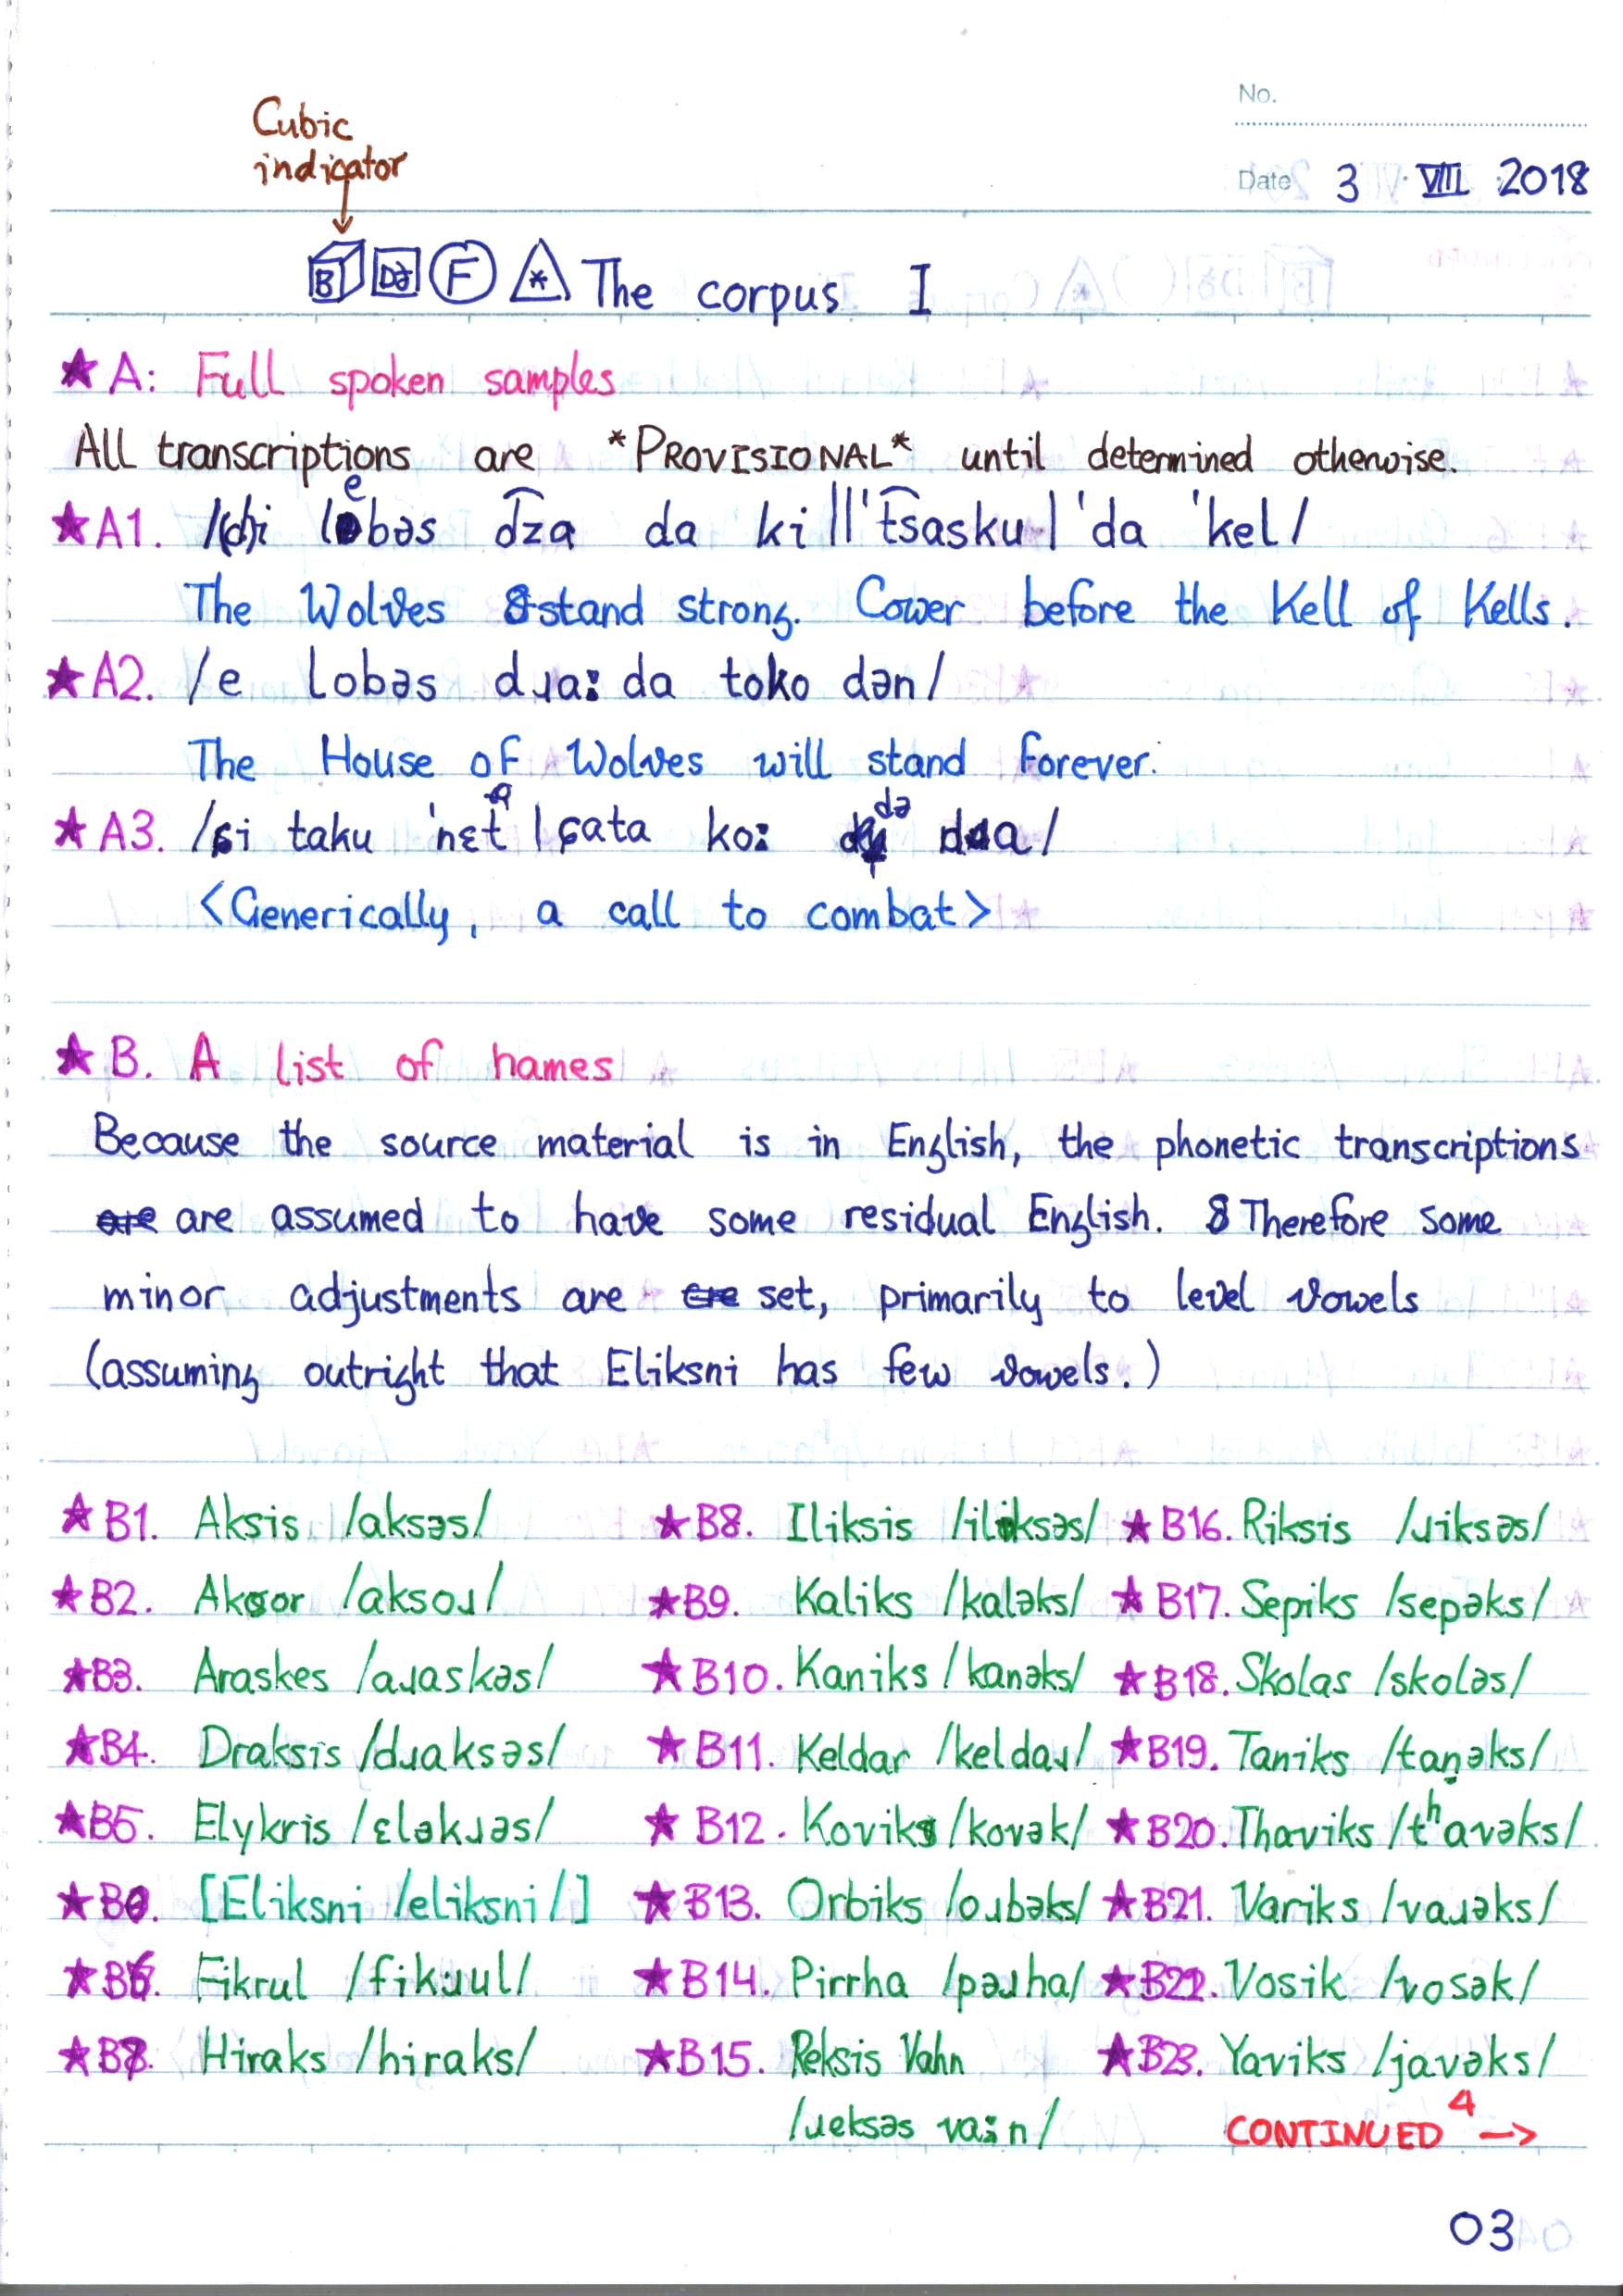 No.
Cubic
indicator
Date 3 VIII 2018
B Də F * The corpus I
★A: Full spoken samples
All transcriptions are *PROVISIONAL* until determined otherwise.
★A1. /(d)i lebəs d͡za da kill't͡sasku|'da 'kel/
The Wolves stand strong. Cower before the Kell of Kells.
★A2. /e lobəs dɹaː da toko dən/
The House of Wolves will stand forever.
★A3. /si taku 'nɛt |çata koː də dɹa/
<Generically, a call to combat>
★B. A list of names
Because the source material is in English, the phonetic transcriptions
are are assumed to have some residual English. Therefore some
minor adjustments are set, primarily to level vowels
(assuming outright that Eliksni has few vowels.)
★B1. Aksis /aksəs/ ★B8. Iliksis /iliksəs/ ★B16. Riksis /ɹiksəs/
★B2. Aksor /aksoɹ/ ★B9. Kaliks /kaləks/ ★B17. Sepiks /sepəks/
★B3. Araskes /aɹaskəs/ ★B10. Kaniks /kanəks/ ★B18. Skolas /skoləs/
★B4. Draksis /dɹaksəs/ ★B11. Keldar /keldaɹ/ ★B19. Taniks /tanəks/
★B5. Elykris /ɛləkɹəs/ ★B12. Koviks /kovək/ ★B20. Thaviks /tʰavəks/
★B0. [Eliksni /eliksni/] ★B13. Orbiks /oɹbəks/ ★B21. Variks /vaɹəks/
★B6. Fikrul /fikɹul/ ★B14. Pirrha /pəɹha/ ★B22. Vosik /vosək/
★B7. Hiraks /hiraks/ ★B15. Reksis Vahn ★B23. Yaviks /javəks/
/ɹeksəs vaːn/ CONTINUED 4 →
03